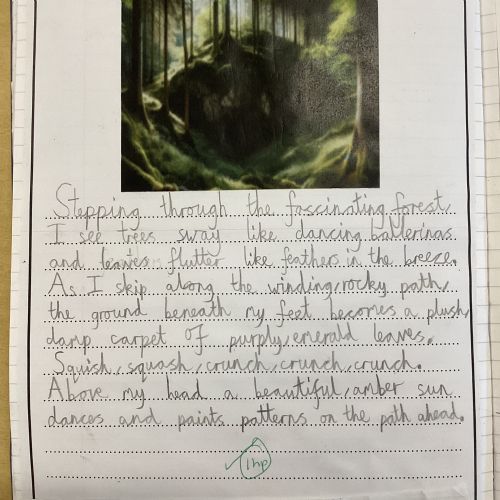 Stepping through the fascinating forest,
I see trees sway like dancing ballerinas
and leaves flutter like feathers in the breeze.
As I skip along the winding, rocky path,
the ground beneath my feet becomes a plush,
damp carpet of purply, emerald leaves.
Squish, squash, crunch, crunch, crunch.
Above my head a beautiful, amber sun
dances and paints patterns on the path ahead.
1hp